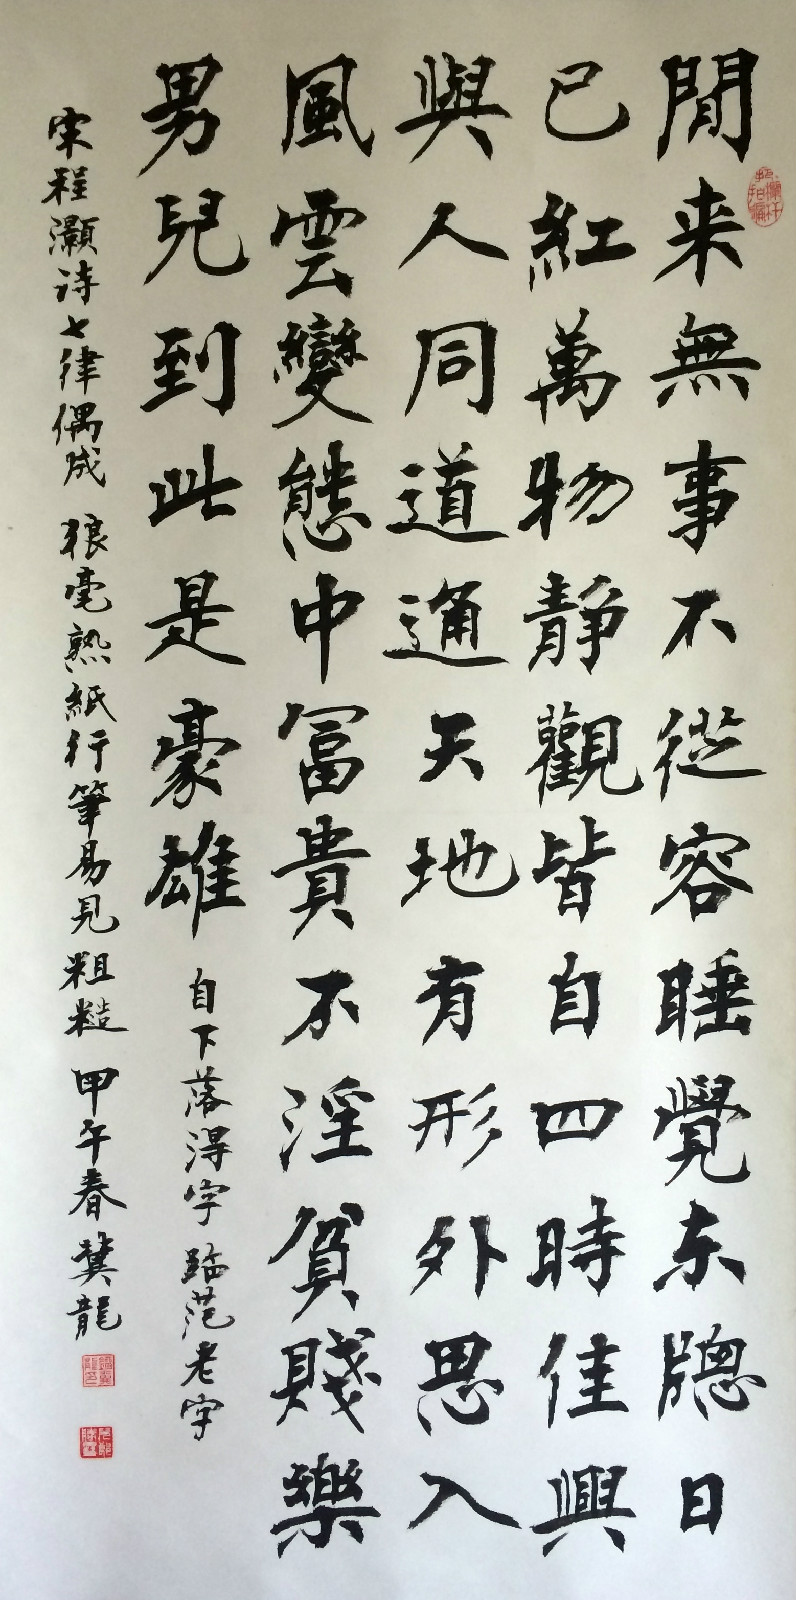 閒来無事不從容睡覺东牕日
已紅萬物静觀皆自四時佳興
與人同道通天地有形外思入
風雲變態中冨貴不淫貧賤樂
男兒到此是豪雄
自下落得字 臨范老字
宋程灝诗七律偶成 狼毫熟紙行筆易見粗糙 甲午春冀龍